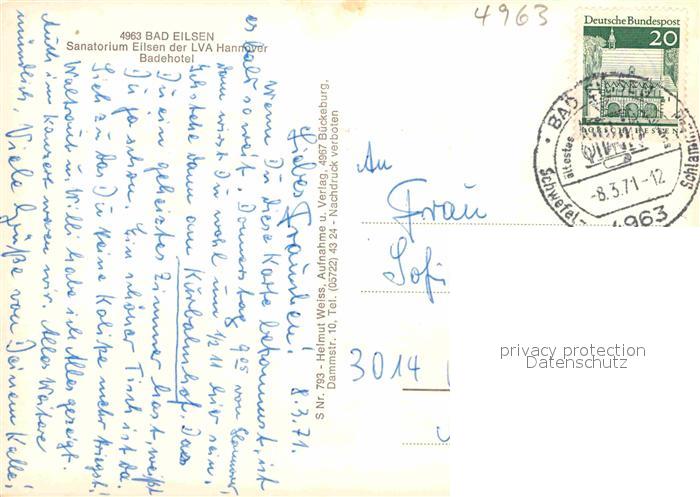 4963
4963 BAD EILSEN
Sanatorium Eilsen der LVA Hannover
Badehotel
Deutsche Bundespost
20
LORSCH/HESSEN
BAD EILSEN
ältestes
Schwefel-
Schlamm
-8.3.71-12
4963
S Nr. 793 - Helmut Weiss, Aufnahme u. Verlag, 4967 Bückeburg,
Dammstr. 10, Tel. (05722) 43 24 - Nachdruck verboten
8.3.71.
Liebes Frauchen!
Wenn Du diese Karte bekommst, ist
es bald soweit. Donnerstag 9 05 von Hannover,
dann wirst Du wohl um ½ 11 hier sein.
Ich stehe dann am Kurbahnhof. Dass
Du ein geheiztes Zimmer hast, weißt
Du ja schon. Ein schöner Tisch ist da.
Sieh zu das Du keine Kolike mehr kriegst!
Waltraud u. Willi habe ich Alles gezeigt.
Auch im Konzert waren wir. Alles Weitere
mündlich. Viele Grüße von Deinem Kalle!
An
Frau
Sofi
3014
privacy protection
Datenschutz